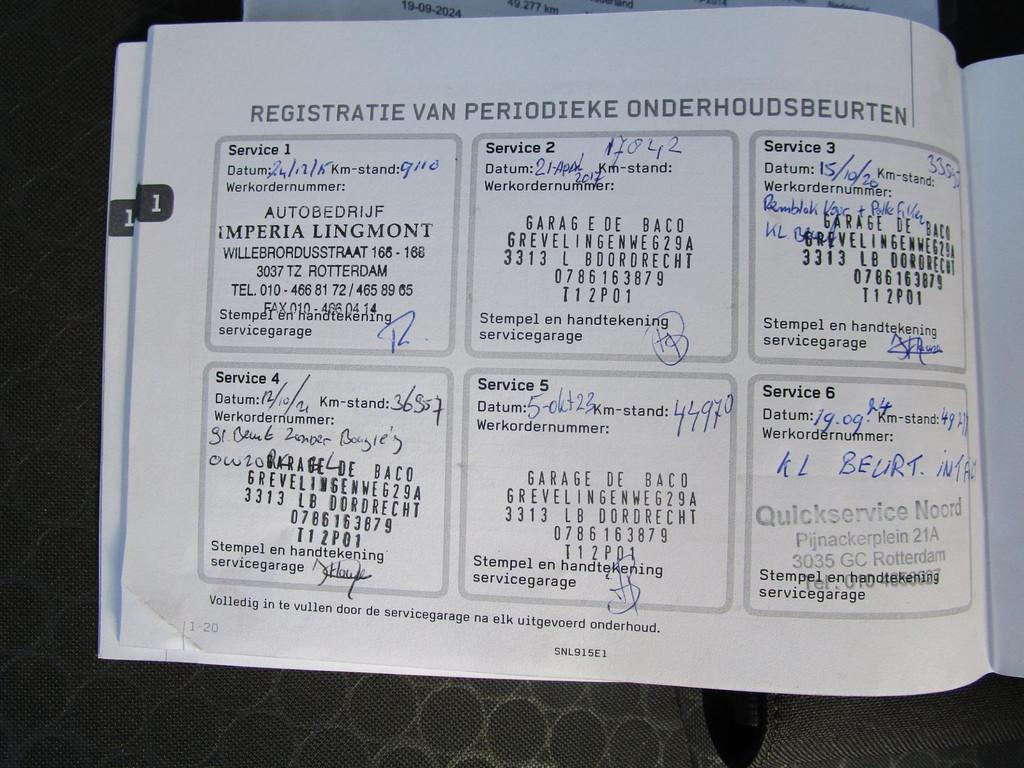 19-09-2024 49.277 km
REGISTRATIE VAN PERIODIEKE ONDERHOUDSBEURTEN
1
1
Service 1
Datum: 24/12/15 Km-stand: 9110
Werkordernummer:
AUTOBEDRIJF
IMPERIA LINGMONT
WILLEBRORDUSSTRAAT 166 - 168
3037 TZ ROTTERDAM
TEL. 010 - 466 81 72 / 465 89 65
FAX 010 - 466 04 14
Stempel en handtekening
servicegarage
Service 2 17042
Datum: 21-April 2017 Km-stand:
Werkordernummer:
GARAGE DE BACO
GREVELINGENWEG29A
3313 L BDORDRECHT
0786163879
T12P01
Stempel en handtekening
servicegarage
Service 3
Datum: 15/10/20 Km-stand:
Werkordernummer:
Remblok Voor +
KL
GARAGE DE BACO
GREVELINGENWEG29A
3313 LB DORDRECHT
0786163879
T12P01
Stempel en handtekening
servicegarage
Service 4
Datum: 12/10/21 Km-stand: 36957
Werkordernummer:
gr. Beurt Zonder Bougie's
GARAGE DE BACO
GREVELINGENWEG29A
3313 LB DORDRECHT
0786163879
T12P01
Stempel en handtekening
servicegarage
Service 5
Datum: 5-okt 23 Km-stand: 44970
Werkordernummer:
GARAGE DE BACO
GREVELINGENWEG29A
3313 LB DORDRECHT
0786163879
T12P01
Stempel en handtekening
servicegarage
Service 6
Datum: 19.09.24 Km-stand:
Werkordernummer:
KL BEURT.
Quickservice Noord
Pijnackerplein 21A
3035 GC Rotterdam
Stempel en handtekening
servicegarage
Volledig in te vullen door de servicegarage na elk uitgevoerd onderhoud.
1-20
SNL915E1